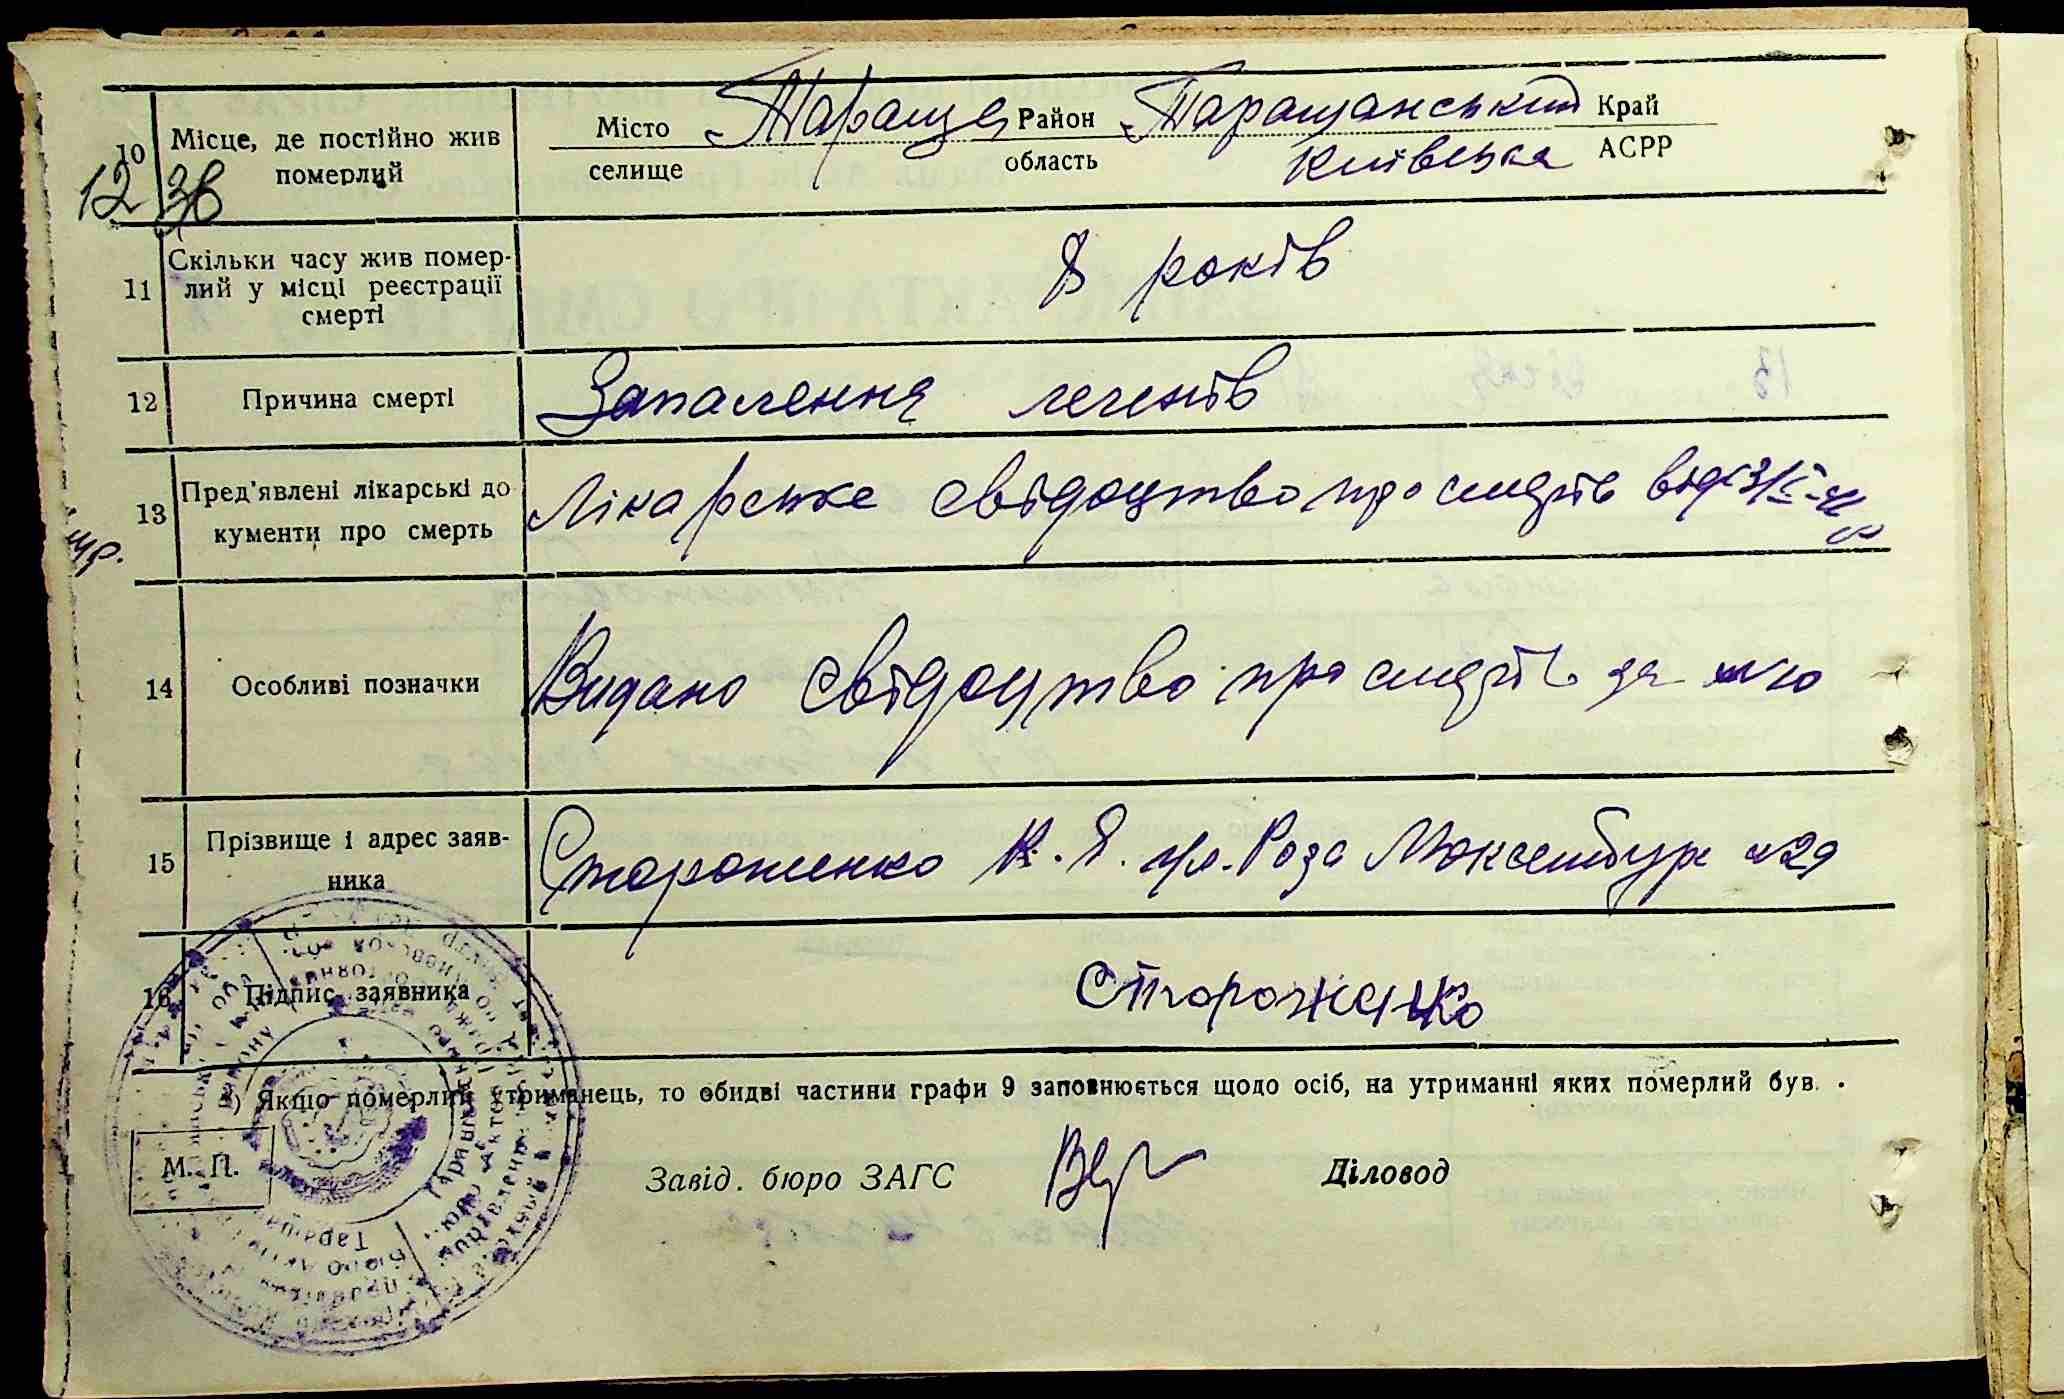 10 Місце, де постійно жив померлий
Місто Тараща Район Таращанський Край
селище область Київська АСРР
12 зв
11 Скільки часу жив помер-
лий у місці реєстрації
смерті
8 років
12 Причина смерті Запалення легенів
13 Пред'явлені лікарські до
кументи про смерть
Лікарське свідоцтво про смерть від
14 Особливі позначки Видано свідоцтво про смерть за
15 Прізвище і адрес заяв-
ника
Стороженко К. Я. Роза Люксембург 29
16 Підпис заявника Стороженко
*) Якщо померлий утриманець, то обидві частини графи 9 заповнюється щодо осіб, на утриманні яких померлий був.
М. П.
Завід. бюро ЗАГС Діловод